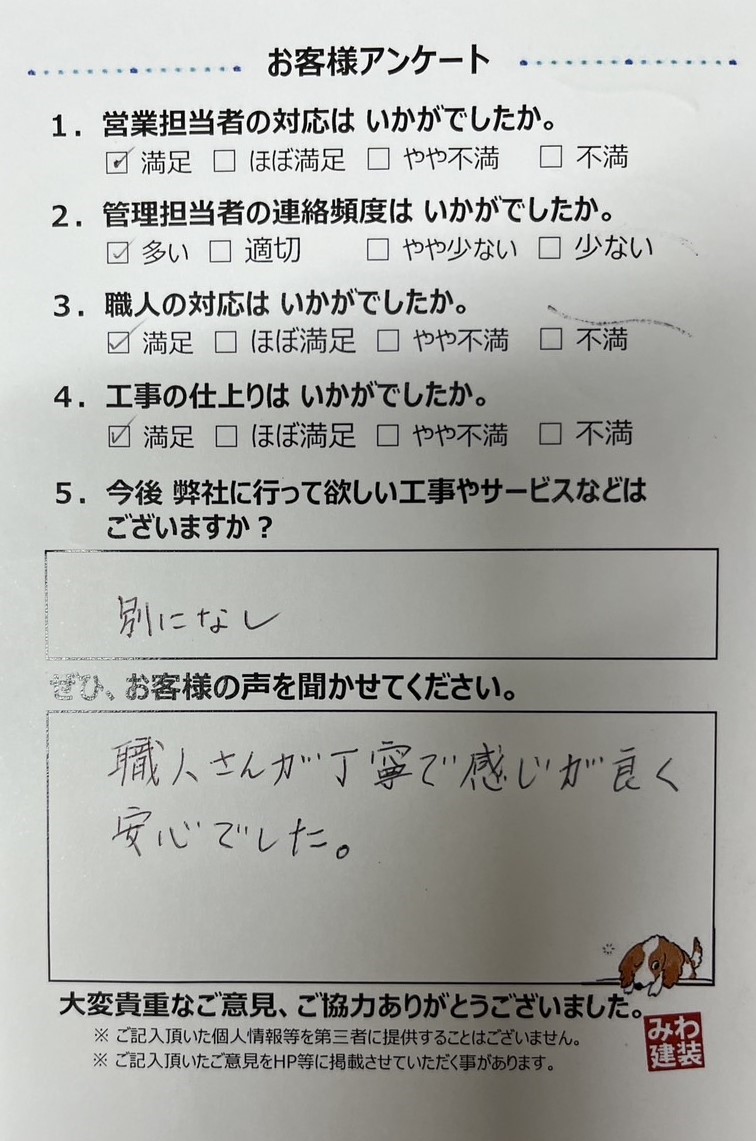 お客様アンケート
1. 営業担当者の対応は いかがでしたか。
☑ 満足 ☐ ほぼ満足 ☐ やや不満 ☐ 不満
2. 管理担当者の連絡頻度は いかがでしたか。
☑ 多い ☐ 適切 ☐ やや少ない ☐ 少ない
3. 職人の対応は いかがでしたか。
☑ 満足 ☐ ほぼ満足 ☐ やや不満 ☐ 不満
4. 工事の仕上りは いかがでしたか。
☑ 満足 ☐ ほぼ満足 ☐ やや不満 ☐ 不満
5. 今後 弊社に行って欲しい工事やサービスなどは
ございますか？
別になし
ぜひ、お客様の声を聞かせてください。
職人さんが丁寧で感じが良く
安心でした。
大変貴重なご意見、ご協力ありがとうございました。
※ ご記入頂いた個人情報等を第三者に提供することはございません。
※ ご記入頂いたご意見をHP等に掲載させていただく事があります。
みわ
建装